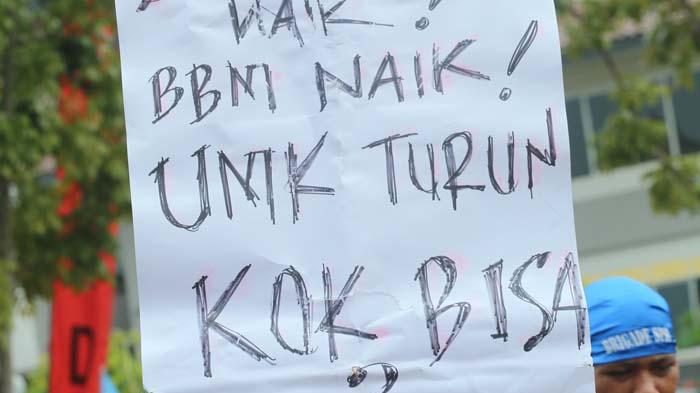 NAIK!
BBNI NAIK!
UNIK TURUN
KOK BISA
?
BRIGADE SPN
D